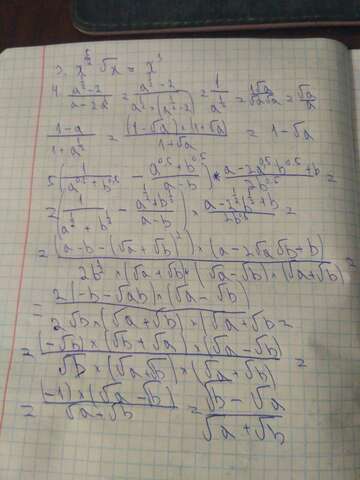 3. x^{5/2} √x = x^3
4 (a^{1/2} - 2)/(a - 2a^{1/2}) = (a^{1/2} - 2)/(a^{1/2} × (a^{1/2} - 2)) = 1/a^{1/2} = 1√a/(√a√a) = √a/a
(1 - a)/(1 + a^{1/2}) = ((1 - √a) × (1 + √a))/(1 + √a) = 1 - √a
5 (1/(a^{0,5} + b^{0,5}) - (a^{0,5} + b^{0,5})/(a - b)) × (a - 2a^{0,5}b^{0,5} + b)/(2b^{0,5}) =
= (1/(a^{1/2} + b^{1/2}) - (a^{1/2} + b^{1/2})/(a - b)) × (a - 2a^{1/2}b^{1/2} + b)/(2b^{1/2}) =
= ((a - b - (√a + √b)^2) × (a - 2√a√b + b))/(2b^{1/2} × (√a + √b) × (√a - √b) × (√a + √b)) =
= (2(-b - √ab) × (√a - √b))/(2√b × (√a + √b) × (√a + √b) =
= ((-√b) × (√b + √a) × (√a - √b))/(√b × (√a + √b) × (√a + √b)) =
= ((-1) × (√a - √b))/(√a + √b) = (√b - √a)/(√a + √b)